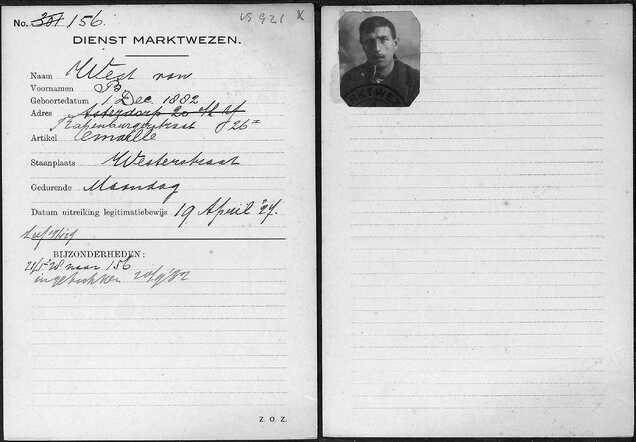 No. 381 156.
DIENST MARKTWEZEN.
Naam West van
Voornamen B.
Geboortedatum 1 Dec. 1882
Adres Asterdorp 20
Rapenburgerstraat 26
Artikel Emaille
Staanplaats Westerstraat
Gedurende Maandag
Datum uitreiking legitimatiebewijs 19 April '27.
BIJZONDERHEDEN:
21/5-'28 naar 156
ingetrokken 20/9/32
Z. O. Z.